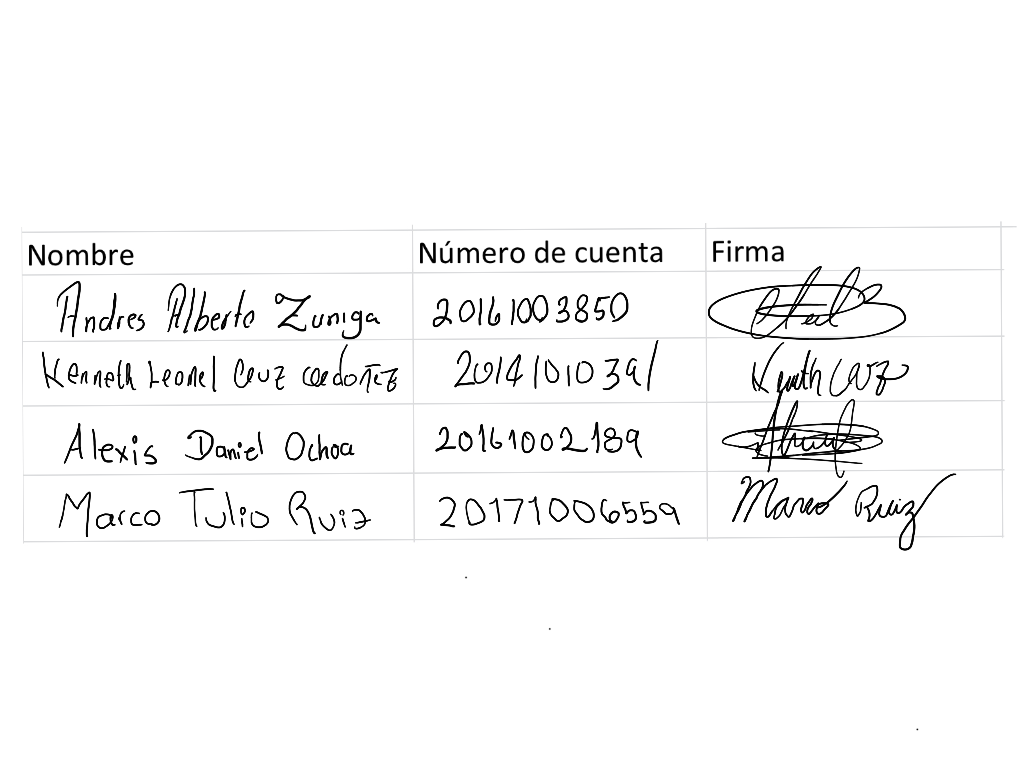 Nombre Número de cuenta Firma
Andres Alberto Zuniga 20161003850
Kenneth Leonel Cruz 20141010391 Kenneth Cruz
Alexis Daniel Ochoa 20161002189
Marco Tulio Ruiz 20171006559 Marco Ruiz